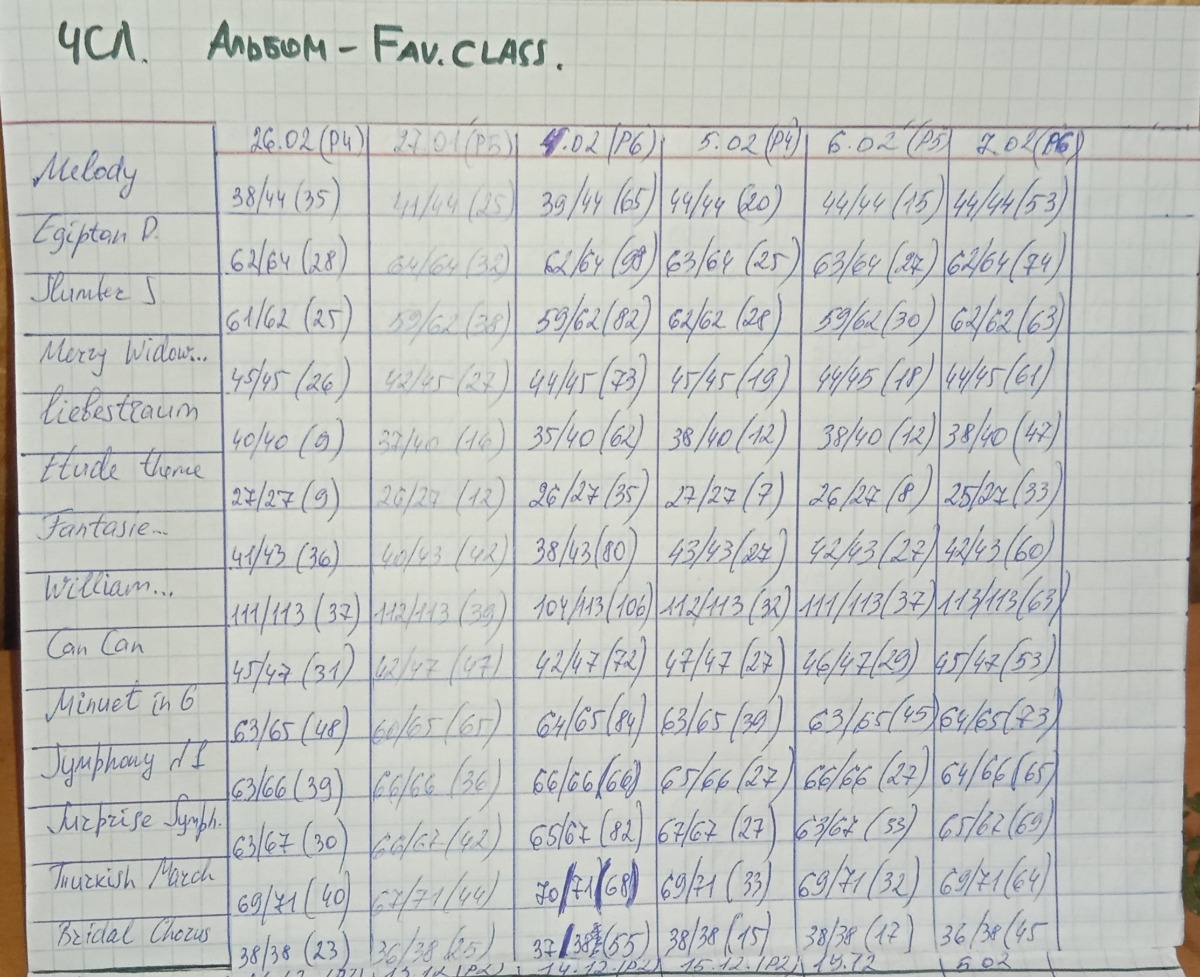 ЧСЛ. АЛЬБОМ - FAV. CLASS.
26.02 (P4) 27.01 (P5) 4.02 (P6) 5.02 (P4) 6.02 (P5) 7.02 (P6)
Melody 38/44 (35) 41/44 (25) 39/44 (65) 44/44 (20) 44/44 (15) 44/44 (53)
Egiptan D. 62/64 (28) 64/64 (32) 62/64 (98) 63/64 (25) 63/64 (27) 62/64 (74)
Slumber S 61/62 (25) 59/62 (38) 59/62 (82) 62/62 (28) 59/62 (30) 62/62 (63)
Merry Widow... 45/45 (26) 42/45 (27) 44/45 (73) 45/45 (19) 44/45 (18) 44/45 (61)
Liebestraum 40/40 (9) 37/40 (16) 35/40 (62) 38/40 (12) 38/40 (12) 38/40 (47)
Etude theme 27/27 (9) 26/27 (12) 26/27 (35) 27/27 (7) 26/27 (8) 25/27 (33)
Fantasie... 41/43 (36) 40/43 (42) 38/43 (80) 43/43 (27) 42/43 (27) 42/43 (60)
William... 111/113 (37) 112/113 (39) 104/113 (106) 112/113 (32) 111/113 (37) 113/113 (63)
Can Can 45/47 (31) 42/47 (47) 42/47 (72) 47/47 (27) 46/47 (29) 45/47 (53)
Minuet in G 63/65 (48) 60/65 (65) 64/65 (84) 63/65 (39) 63/65 (45) 64/65 (73)
Symphony №1 63/66 (39) 66/66 (36) 66/66 (66) 65/66 (27) 66/66 (27) 64/66 (65)
Surprise Symph. 63/67 (30) 66/67 (42) 65/67 (82) 67/67 (27) 63/67 (33) 65/67 (69)
Tmurkish March 69/71 (40) 67/71 (44) 70/71 (68) 69/71 (33) 69/71 (32) 69/71 (64)
Bridal Chorus 38/38 (23) 36/38 (25) 37/38 (55) 38/38 (15) 38/38 (17) 36/38 (45
13.12 (P2) 14.12. (P2) 15.12. (P2) 19.12 5.02